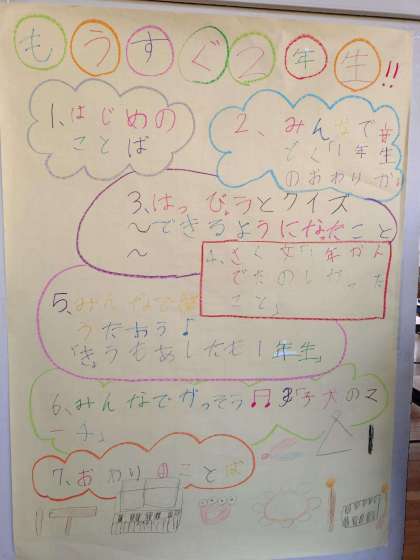 もうすぐ2年生!!
1、はじめの
ことば
2、みんなで
1年生
のおわりが
3、はっぴょうとクイズ
〜できるようになたこと
〜
4、さく文「1年かん
でたのしかった
こと」
5、みんなで
うたおう♪
「きょうもあしたも1年生」
6、みんなでがっそう♫
ーチ」
7、おわりのことば